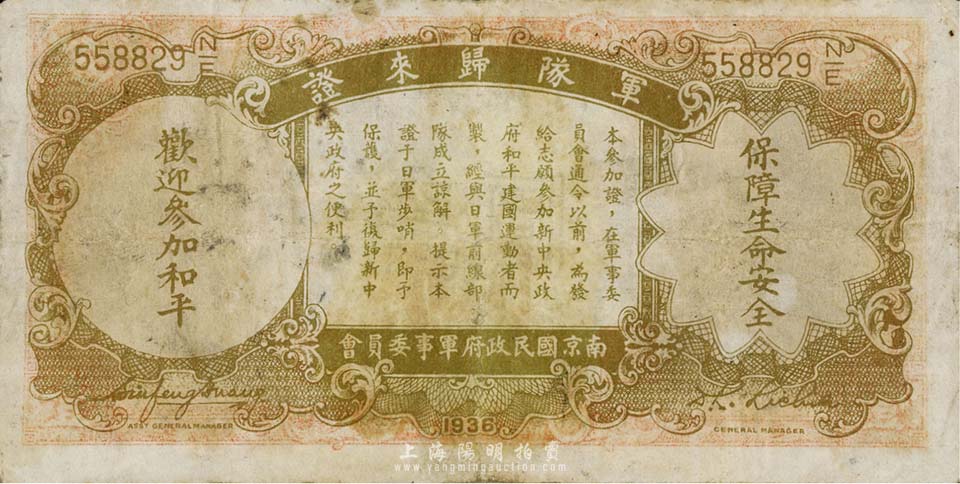 558829 N/E
558829 N/E
軍隊歸來證
保障生命安全
本參加證，在軍事委
員會通令以前，為發
給志願參加新中央政
府和平建國運動者而
製，經與日軍前線部
隊成立諒解。提示本
證于日軍步哨，即予
保護，並予復歸新中
央政府之便利
歡迎參加和平
南京國民政府軍事委員會
ASST GENERAL MANAGER
GENERAL MANAGER
1936
上海陽明拍賣
www.yangmingauction.com